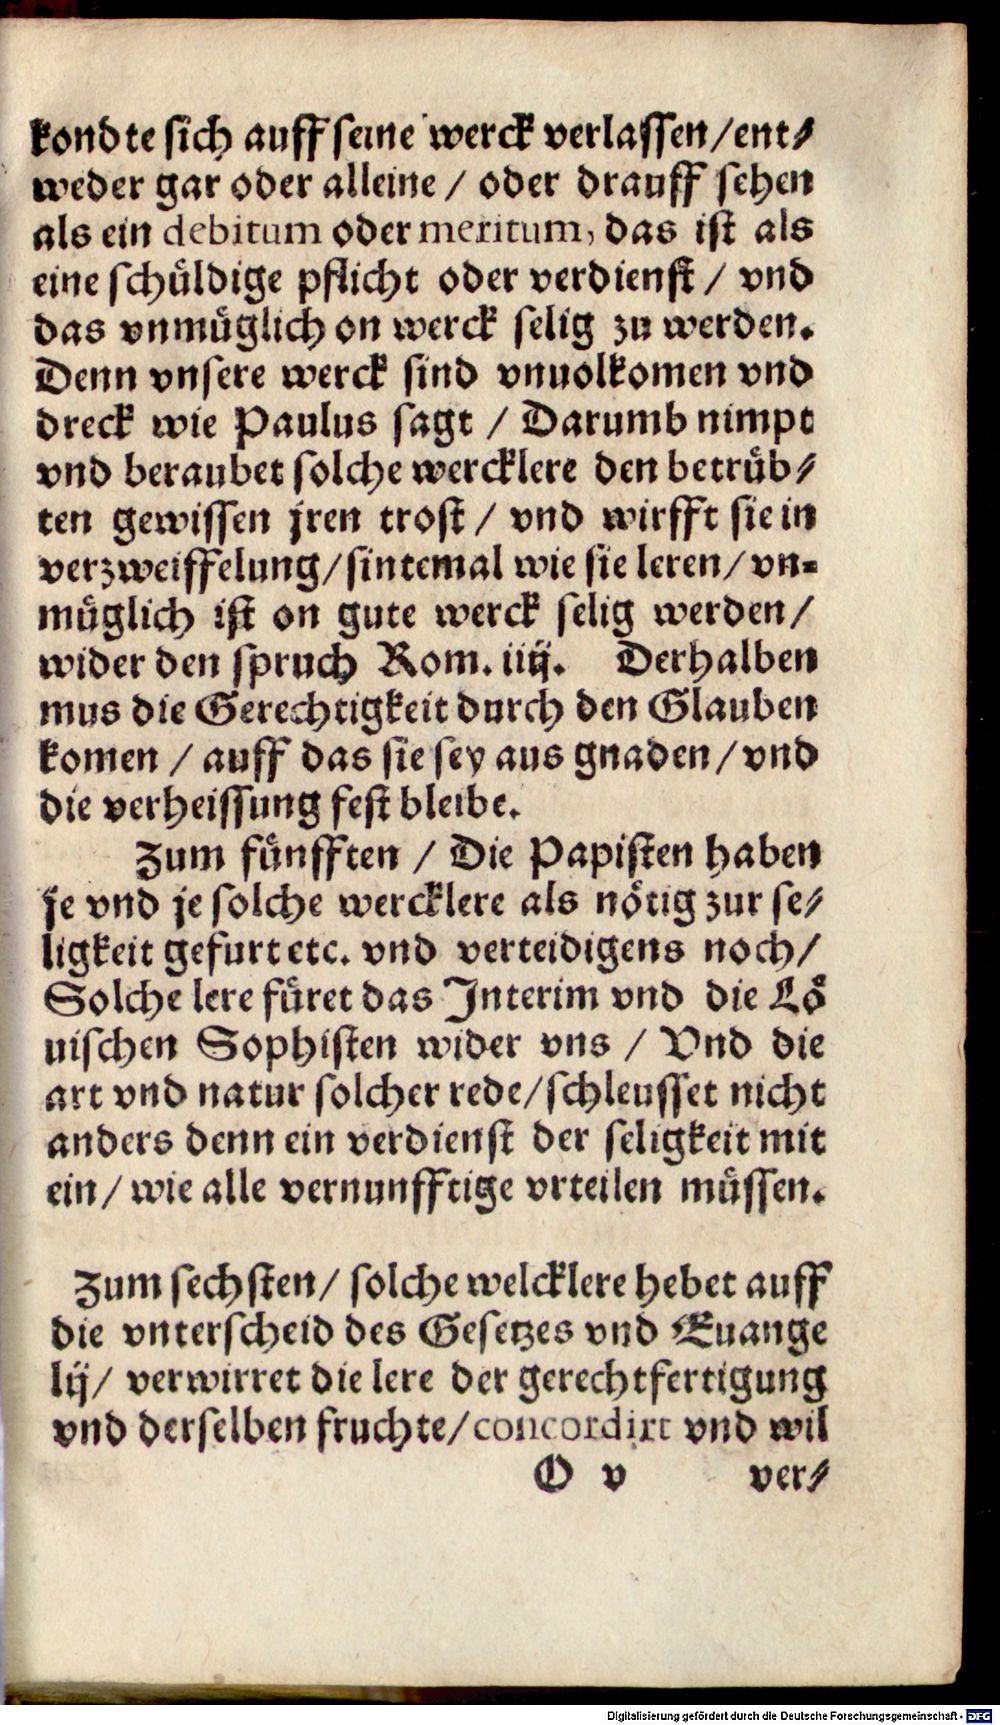 kondte sich auff seine werck verlassen/ent⸗
weder gar oder alleine / oder drauff sehen
als ein debitum oder meritum, das ist als
eine schüldige pflicht oder verdienst / vnd
das vnmüglich on werck selig zu werden.
Denn vnsere werck sind vnuolkomen vnd
dreck wie Paulus sagt / Darumb nimpt
vnd beraubet solche wercklere den betrüb⸗
ten gewissen jren trost / vnd wirfft sie in
verzweiffelung/sintemal wie sie leren/vn⸗
müglich ist on gute werck selig werden/
wider den spruch Rom. iiij. Derhalben
mus die Gerechtigkeit durch den Glauben
komen / auff das sie sey aus gnaden/vnd
die verheissung fest bleibe.
Zum fünfften / Die Papisten haben
je vnd je solche wercklere als nötig zur se⸗
ligkeit gefurt etc. vnd verteidigens noch/
Solche lere füret das Interim vnd die Lö
uischen Sophisten wider vns / Vnd die
art vnd natur solcher rede/schleusset nicht
anders denn ein verdienst der seligkeit mit
ein/wie alle vernunfftige vrteilen müssen.
Zum sechsten/ solche welcklere hebet auff
die vnterscheid des Gesetzes vnd Euange
lij/ verwirret die lere der gerechtfertigung
vnd derselben fruchte/concordirt vnd wil
O v ver⸗
Digitalisierung gefördert durch die Deutsche Forschungsgemeinschaft - DFG